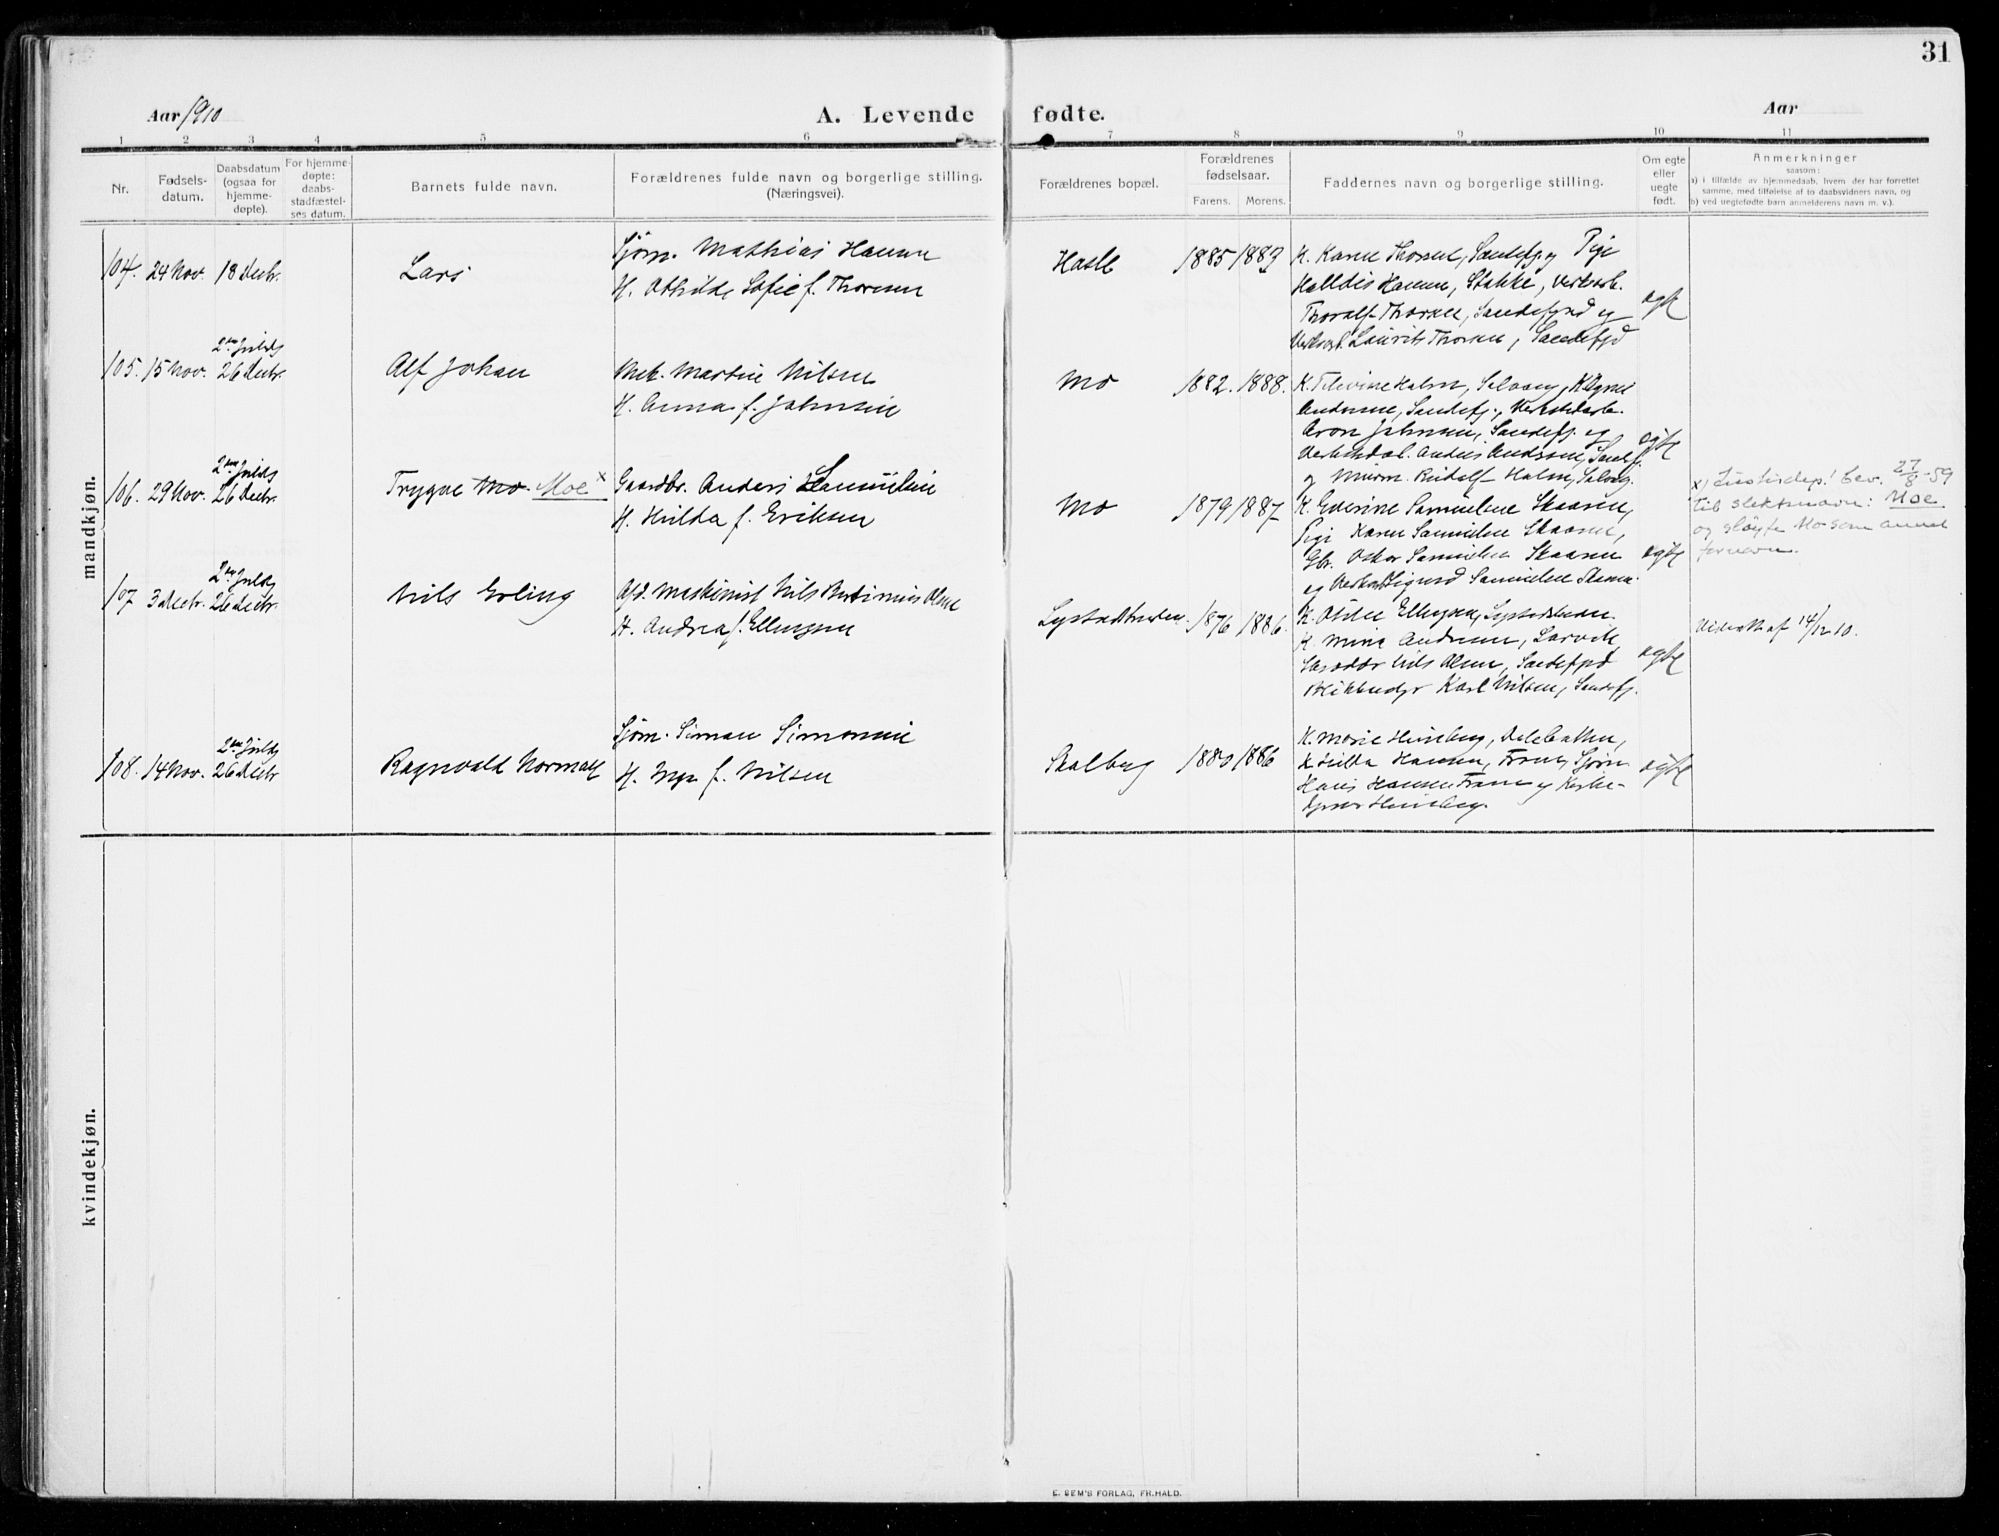 31
Aar 1910
A. Levende fødte.
Aar
1 2 3 4 5 6 7 8 9 10 11
Nr.
Fødsels-
datum.
Daabsdatum
(ogsaa for
hjemme-
døpte).
For hjemme-
døpte:
daabs-
stadfæstel-
ses datum.
Barnets fulde navn.
Forældrenes fulde navn og borgerlige stilling.
(Næringsvei).
Forældrenes bopæl.
Forældrenes
fødselsaar.
Farens. Morens.
Faddernes navn og borgerlige stilling.
Om egte
eller
uegte
født.
Anmerkninger
saasom:
a) i tilfælde av hjemmedaab, hvem der har forrettet
samme, med tilføielse af to daabsvidners navn, og
b) ved uegtefødte barn anmelderens navn m. v.).
mandkjøn.
104. 24 Nov. 18 Decbr.
Lars
Sjøm. Mathias Hansen
H. Othilde Sofie f. Thorsen
Hasle
1885 1883
K. Karen Thorsen, Sandefj. og Pige
Halldis Hansen, Stakke, Verksarb.
Thoralf Thorsen, Sandefjord og
Laurits Thorsen, Sandefjd
egte
105. 15 Nov. 2den Juledg 26 Decbr.
Alf Johan
Mek. Martin Nilsen
H. Anna f. Johnsen
Mo
1882. 1888.
K. Holm, K. Agnes
Andersen, Sandefj.,
Aron Johnsen, Sandefj. og
Anders Andersen, Sandefj.
og Rudolf Holm,
egte
106. 29 Nov. 2den Juledg 26 Decbr.
Trygve Mo Moe x
Gaardbr. Anders Samuelsen
H. Hilda f. Eriksen
Mo
1879 1887
K. Severine Samuelsen Skaaren,
Pige Karen Samuelsen Skaaren,
Gbr. Oskar Samuelsen Skaaren
og Sigurd Samuelsen
egte
x) Justisdep. bev. 27/8-59
til slektsnavn: Moe
og sløyfe Mo som annet
fornavn.
107 3 Decbr. 2den Juledg 26 Decbr.
Nils Erling
Afd. Maskinist Nils Olsen
H. Andrea f. Ellingsen
1876 1886.
K. Ellingsen,
K. Mina Andersen, Larvik
Nils Olsen, Sandefjrd
Karl Nilsen, Sandefj.
egte
Vidatt. af 14/12 10.
108. 14 Nov. 2den Juledg 26 Decbr
Ragnvald Normann
Sjøm. Simon Simonsen
H. Inga f. Nilsen
Skalberg
1880 1886
K. Marie
K. Hilda Hansen, Fram, Sjøm.
Hans Hansen Fram og
egte
kvindekjøn.
E. SEM'S FORLAG, FR.HALD.